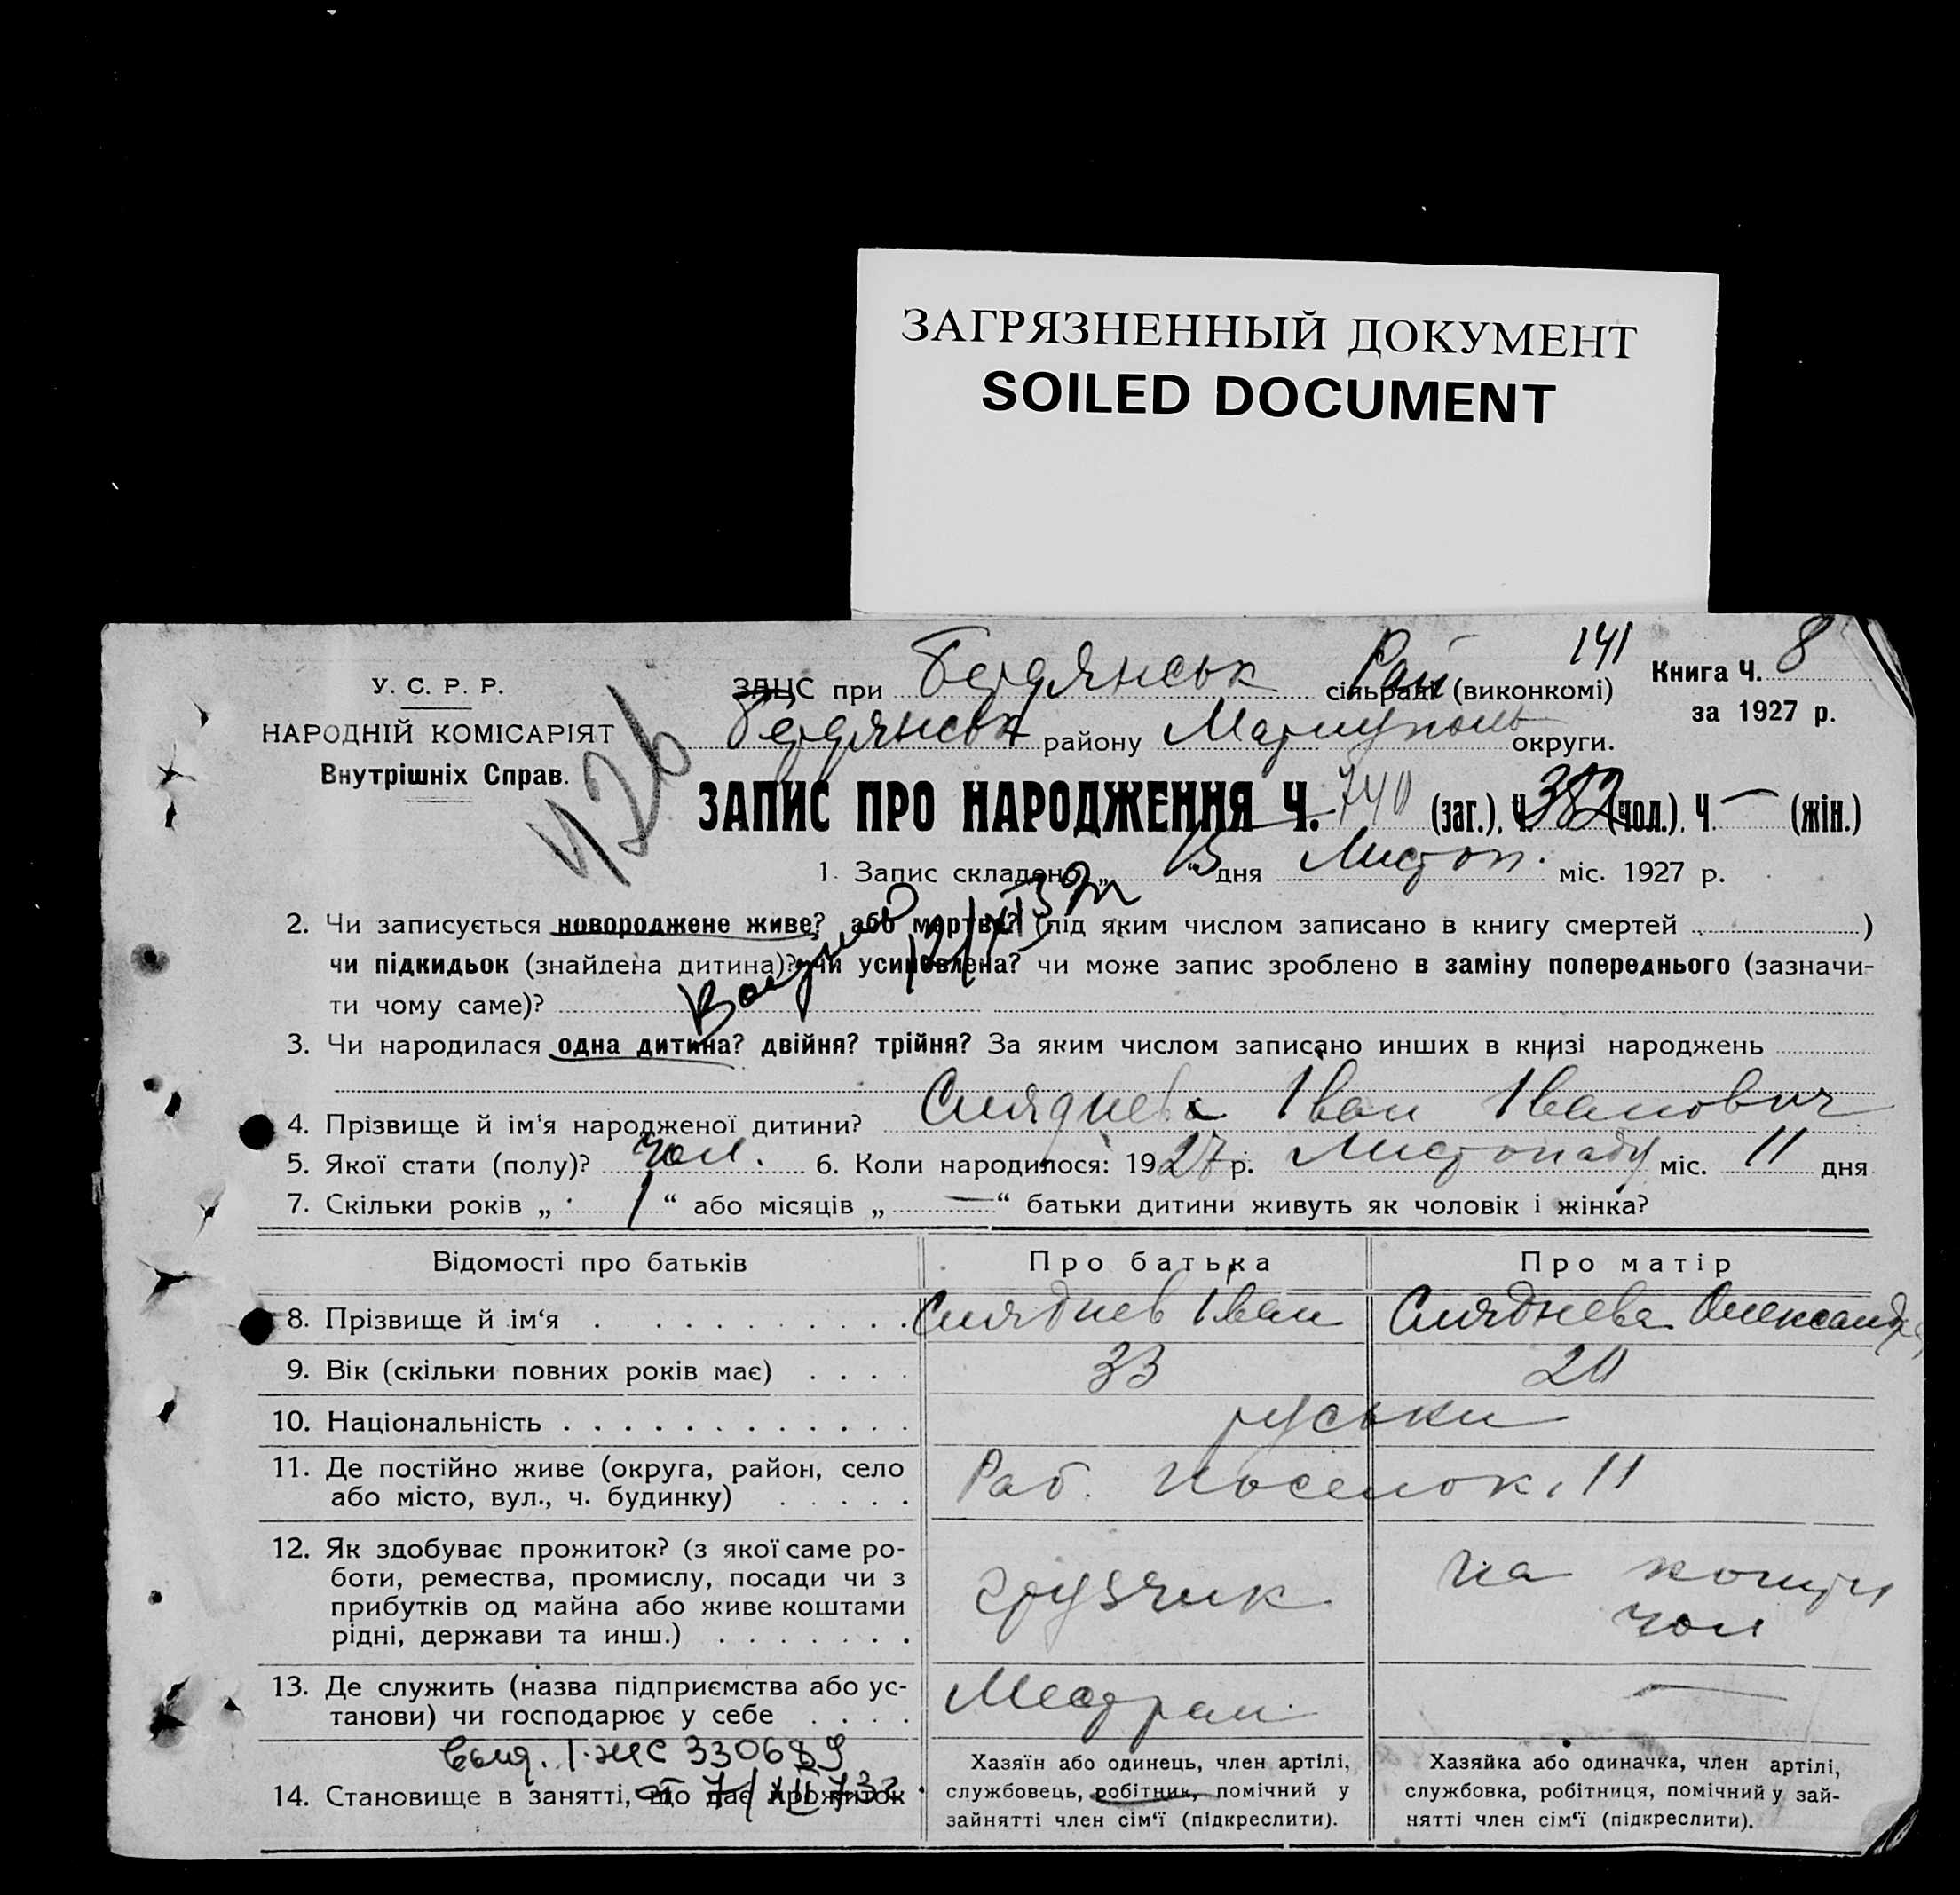 ЗАГРЯЗНЕННЫЙ ДОКУМЕНТ
SOILED DOCUMENT
141
Книга Ч. 8
за 1927 р.
У. С. Р. Р.
НАРОДНІЙ КОМІСАРІЯТ
Внутрішніх Справ.
426
ЗАЦС при Бердянськ Рай сільраді (виконкомі)
Бердянськ району Маріуполь округи.
ЗАПИС ПРО НАРОДЖЕННЯ Ч. 740 (заг.), Ч. 382 (чол.), Ч. — (жін.)
1. Запис складено „ 15 “ дня Листоп. міс. 1927 р.
2. Чи записується новороджене живе? або мертве? (під яким числом записано в книгу смертей )
чи підкидьок (знайдена дитина)? чи усиновлена? чи може запис зроблено в заміну попереднього (зазначи-
ти чому саме)?
3. Чи народилася одна дитина? двійня? трійня? За яким числом записано инших в книзі народжень
4. Прізвище й ім‘я народженої дитини? Іван Іванович
5. Якої стати (полу)? чол. 6. Коли народилося: 1927 р. Листопаду міс. 11 дня
7. Скільки років „ 1 “ або місяців „ — “ батьки дитини живуть як чоловік і жінка?
Відомості про батьків Про батька Про матір
8. Прізвище й ім‘я Сляднев Іван Сляднева Олександра
9. Вік (скільки повних років має) 33 20
10. Національність руськи
11. Де постійно живе (округа, район, село Раб. поселок, 11
або місто, вул., ч. будинку)
12. Як здобуває прожиток? (з якої саме ро-
боти, ремества, промислу, посади чи з
прибутків од майна або живе коштами
рідні, держави та инш.)
грузчик
на кошти
чол
13. Де служить (назва підприємства або ус-
танови) чи господарює у себе
—
14. Становище в занятті, що дає прожиток
Хазяїн або одинець, член артілі,
службовець, робітник, помічний у
зайнятті член сім‘ї (підкреслити).
Хазяйка або одиначка, член артілі,
службовка, робітниця, помічний у зай-
нятті член сім‘ї (підкреслити).